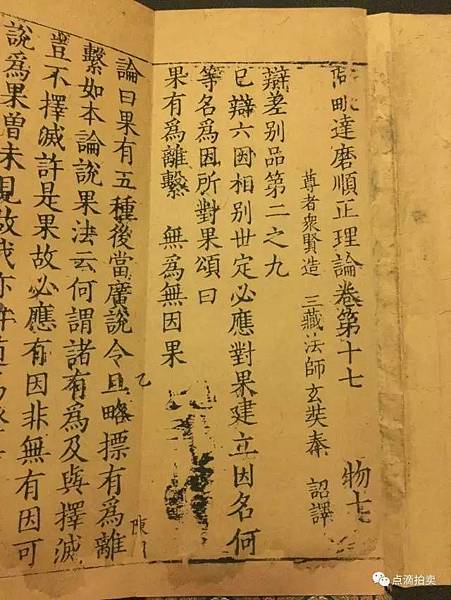 阿毗達磨順正理論卷第十七 物七
尊者衆賢造 三藏法師玄奘奉 詔譯
辯差别品第二之九
已辯六因相别世定必應對果建立因名何
等名爲因所對果頌曰
果有爲離繫 無爲無因果
乙
陳
論曰果有五種後當廣說今且略標有爲離
繫如本論說果法云何謂諸有爲及與擇滅
豈不擇滅許是果故必應有因非無有因可
說爲果曾未見故我亦許
点滴拍卖